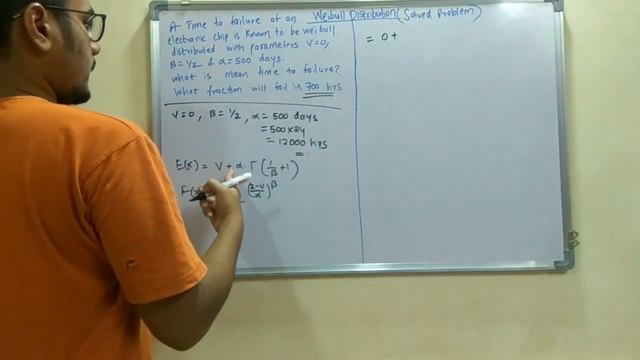 Weibull Distribution (Solved Problem)
A Time to failure of an
electronic chip is known to be weibull
distributed with parameters V=0,
B = 1/2 & α = 500 days.
what is mean time to failure?
What fraction will fail in 700 hrs
V=0, B = 1/2, α = 500 days
= 500 x 24
= 12000 hrs
E(x) = V + α Γ (1/B + 1)
(x-v/α)^B
= 0 +